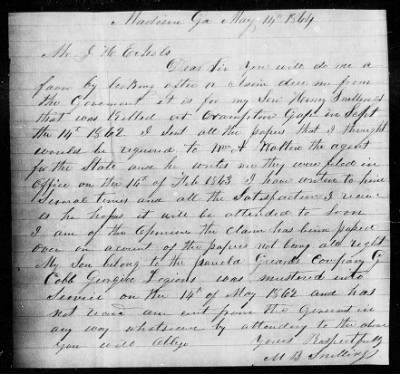 Madison Ga May 14th 1864
Mr J H Echols
Dear Sir You will do me a
favor by looking after a claim due me from
the Goverment it is for my Son Henry Snellings
that was Killed at Crampton Gap in Sept
the 14th 1862 I sent all the papers that I thought
would be required to Mr A the agent
for the State and he writes me they were filed in
Office on the 16th of Feb 1863 I have written to him
Several times and all the Satisfaction I receive
is he hopes it will be attended to Soon
I am of the Opinion the claim has been passed
over on acount of the papers not being all right
My Son belong to the Panola Guards Company G
Cobb Georgia Legions was mustered into
Service on the 14th of May 1862 and has
not received any cent from the Goverment in
any way whatsoever by attending to the above
you will Oblige Yours Respectfully
M B Snellings